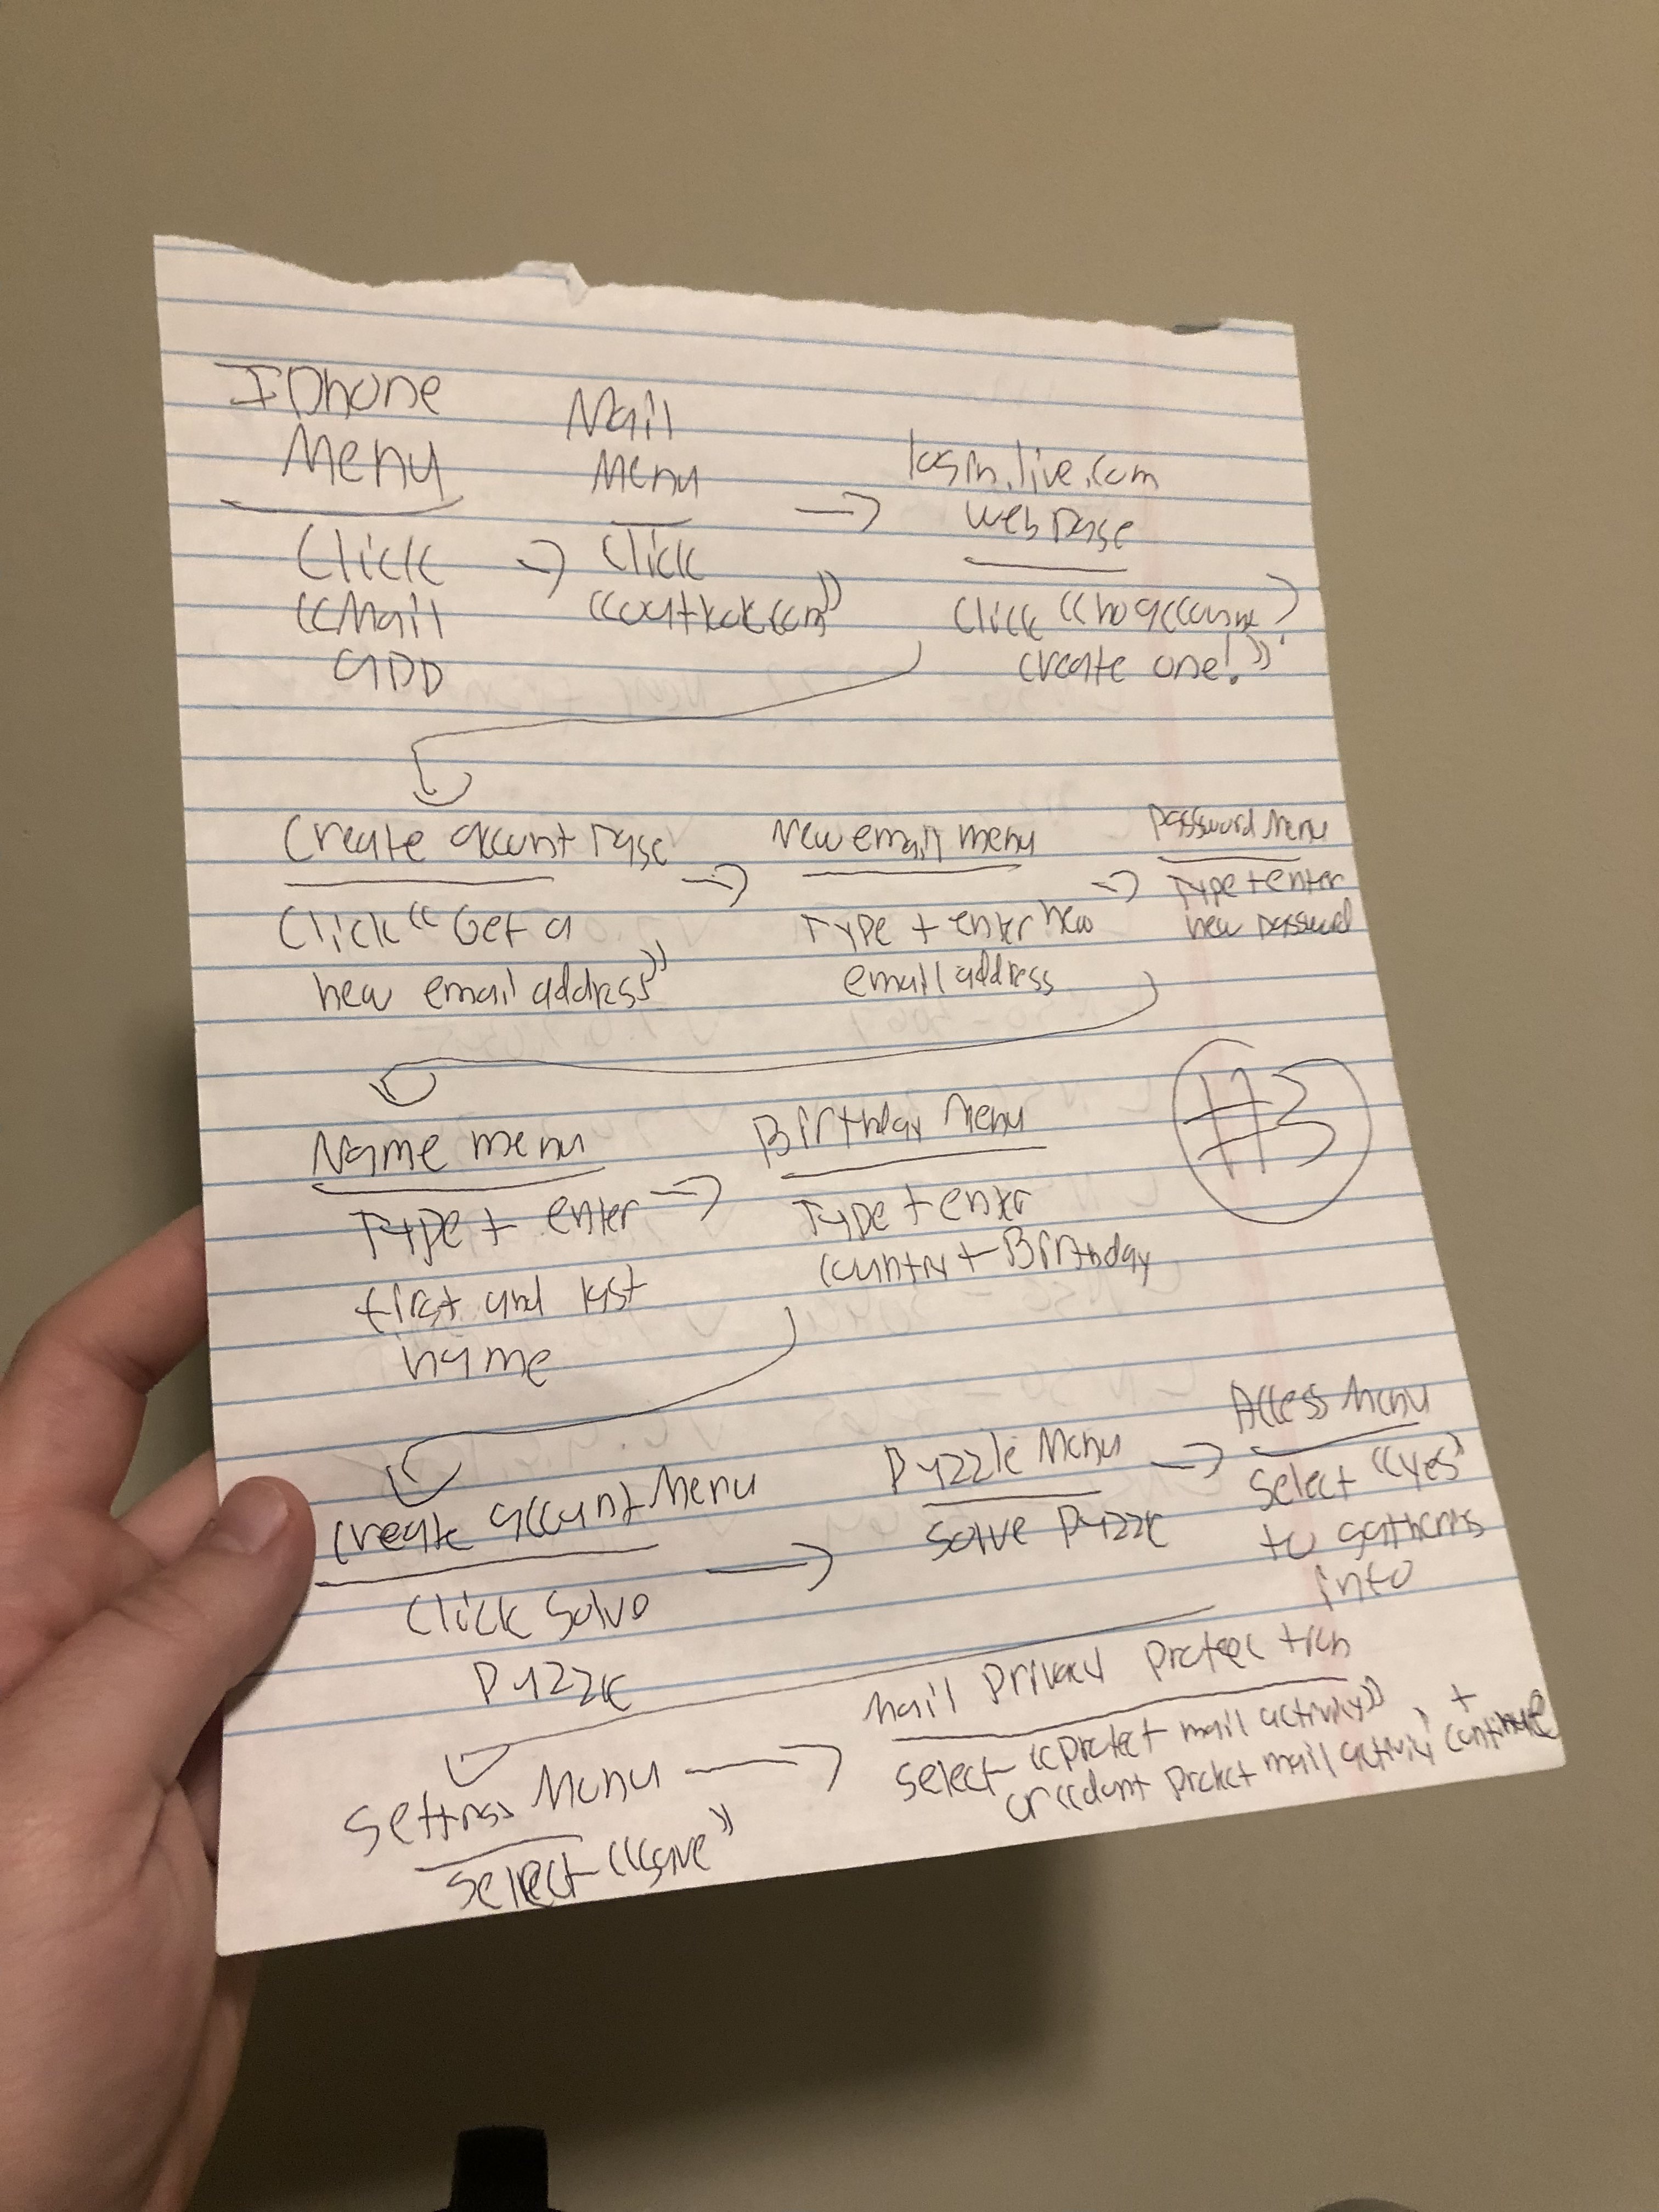 IPhone
Menu
Click
"Mail
app
Mail
Menu
Click
"outlook.com"
login.live.com
web page
Click "no account?
create one!"
Create account page
Click "Get a
new email address"
New email menu
Type + enter new
email address
Password Menu
Type + enter
new password
#3
Name menu
Type + enter
first and last
name
Birthday Menu
Type + enter
country + Birthday
Create account Menu
Click Solve
puzzle
Puzzle Menu
Solve puzzle
Access Menu
Select "yes"
to gathering
info
Settings Menu
Select "save"
Mail Privacy Protection
Select "protect mail activity"
or "dont protect mail activity" + continue